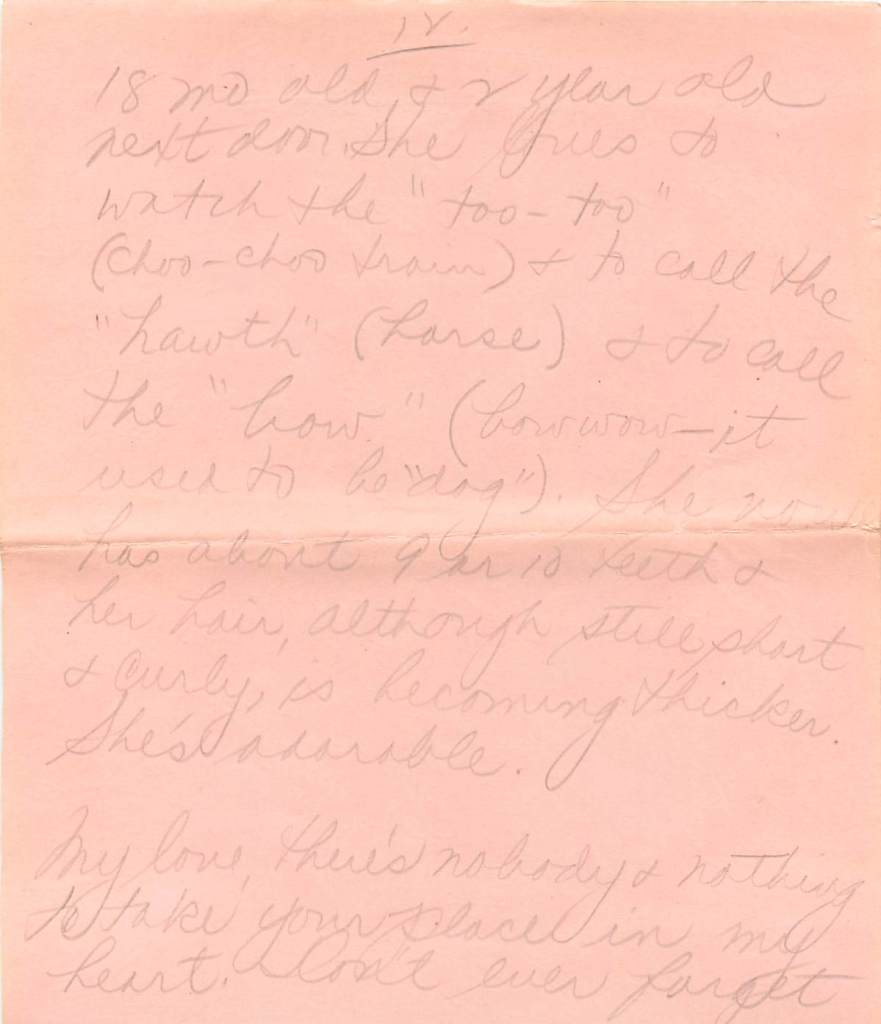 IV.
18 mo old & 2 year old
next door. She loves to
watch the "too-too"
(choo-choo train) & to call the
"hawth" (horse) & to call
the "bow" (bowwow—it
used to be "dog"). She now
has about 9 or 10 teeth &
her hair, although still short
& curly, is becoming thicker.
She's adorable.
My love, there's nobody & nothing
to take your place in my
heart. Don't ever forget